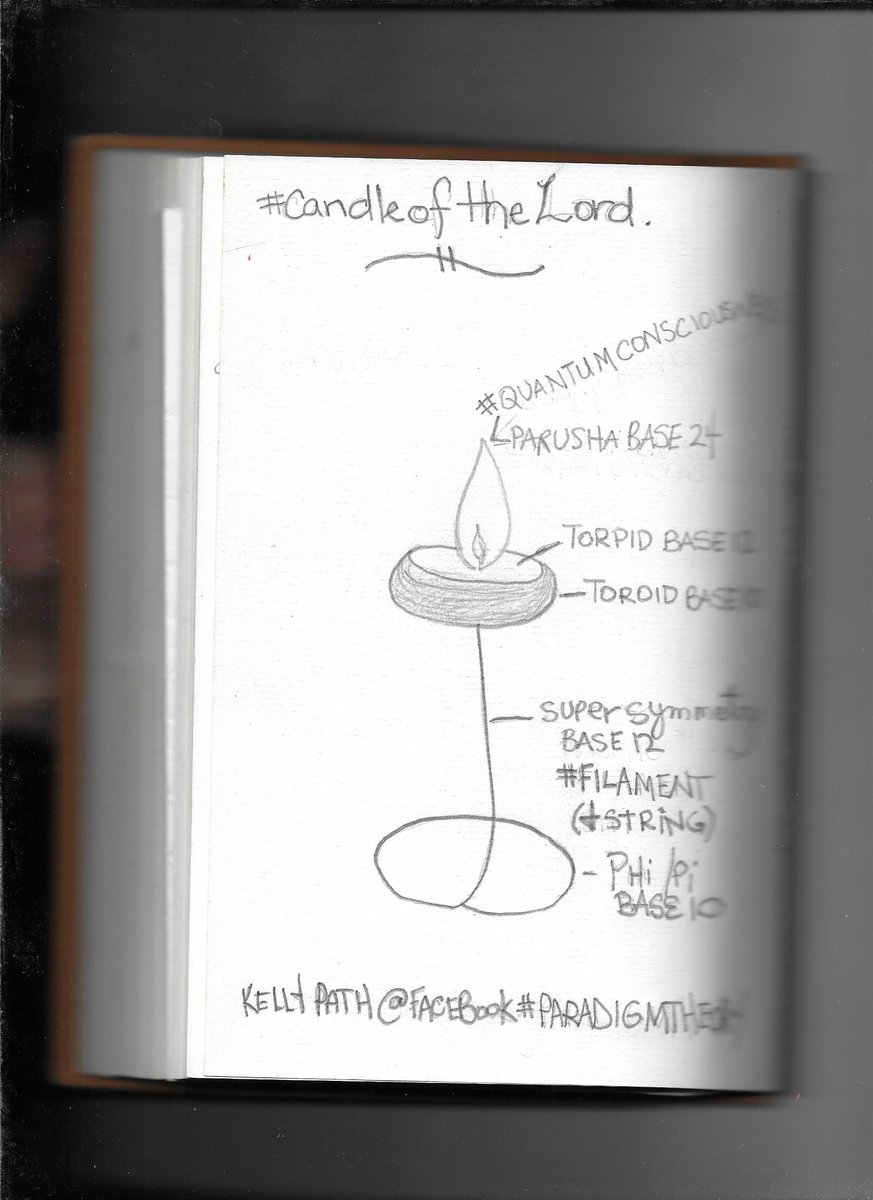 #Candle of the Lord.
#QUANTUM CONSCIOUSNESS
PARUSHA BASE 24
TORPID BASE 12
TOROID BASE
SUPER symmetry
BASE 12
#FILAMENT
(+STRING)
PHi/Pi
BASE 10
KELLY PATH @FACEBOOK #PARADIGMTHEORY